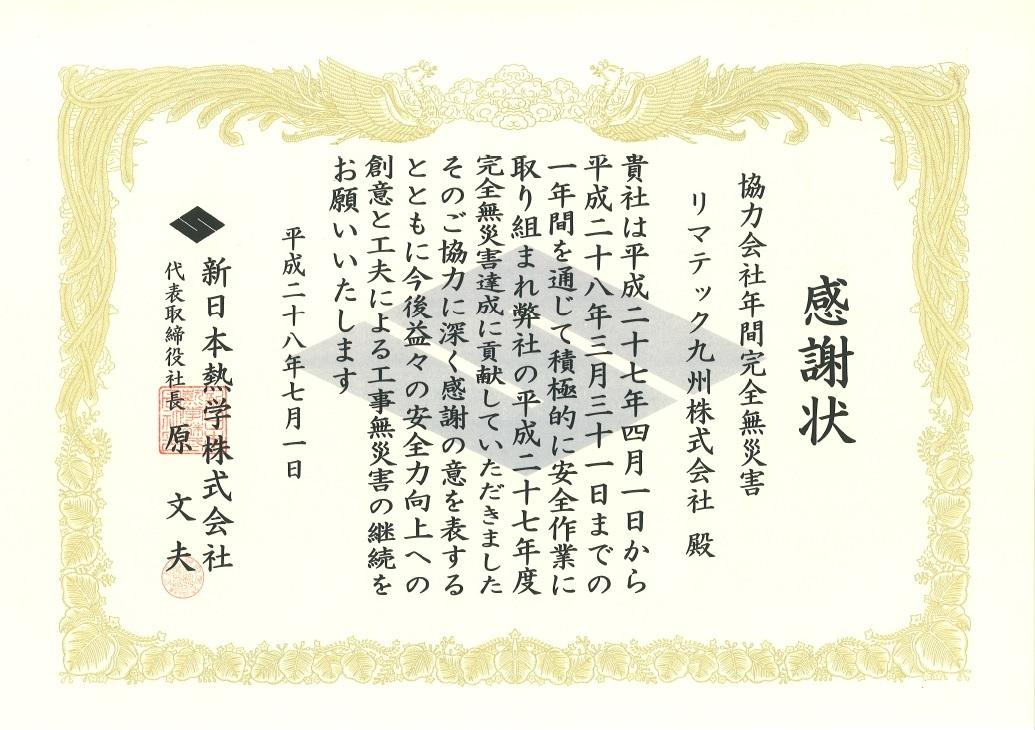 感謝状
協力会社年間完全無災害
リマテック九州株式会社 殿
貴社は平成二十七年四月一日から
平成二十八年三月三十一日までの
一年間を通じて積極的に安全作業に
取り組まれ弊社の平成二十七年度
完全無災害達成に貢献していただきました
そのご協力に深く感謝の意を表する
とともに今後益々の安全力向上への
創意と工夫による工事無災害の継続を
お願いいたします
平成二十八年七月一日
新日本熱学株式会社
代表取締役社長 原 文夫